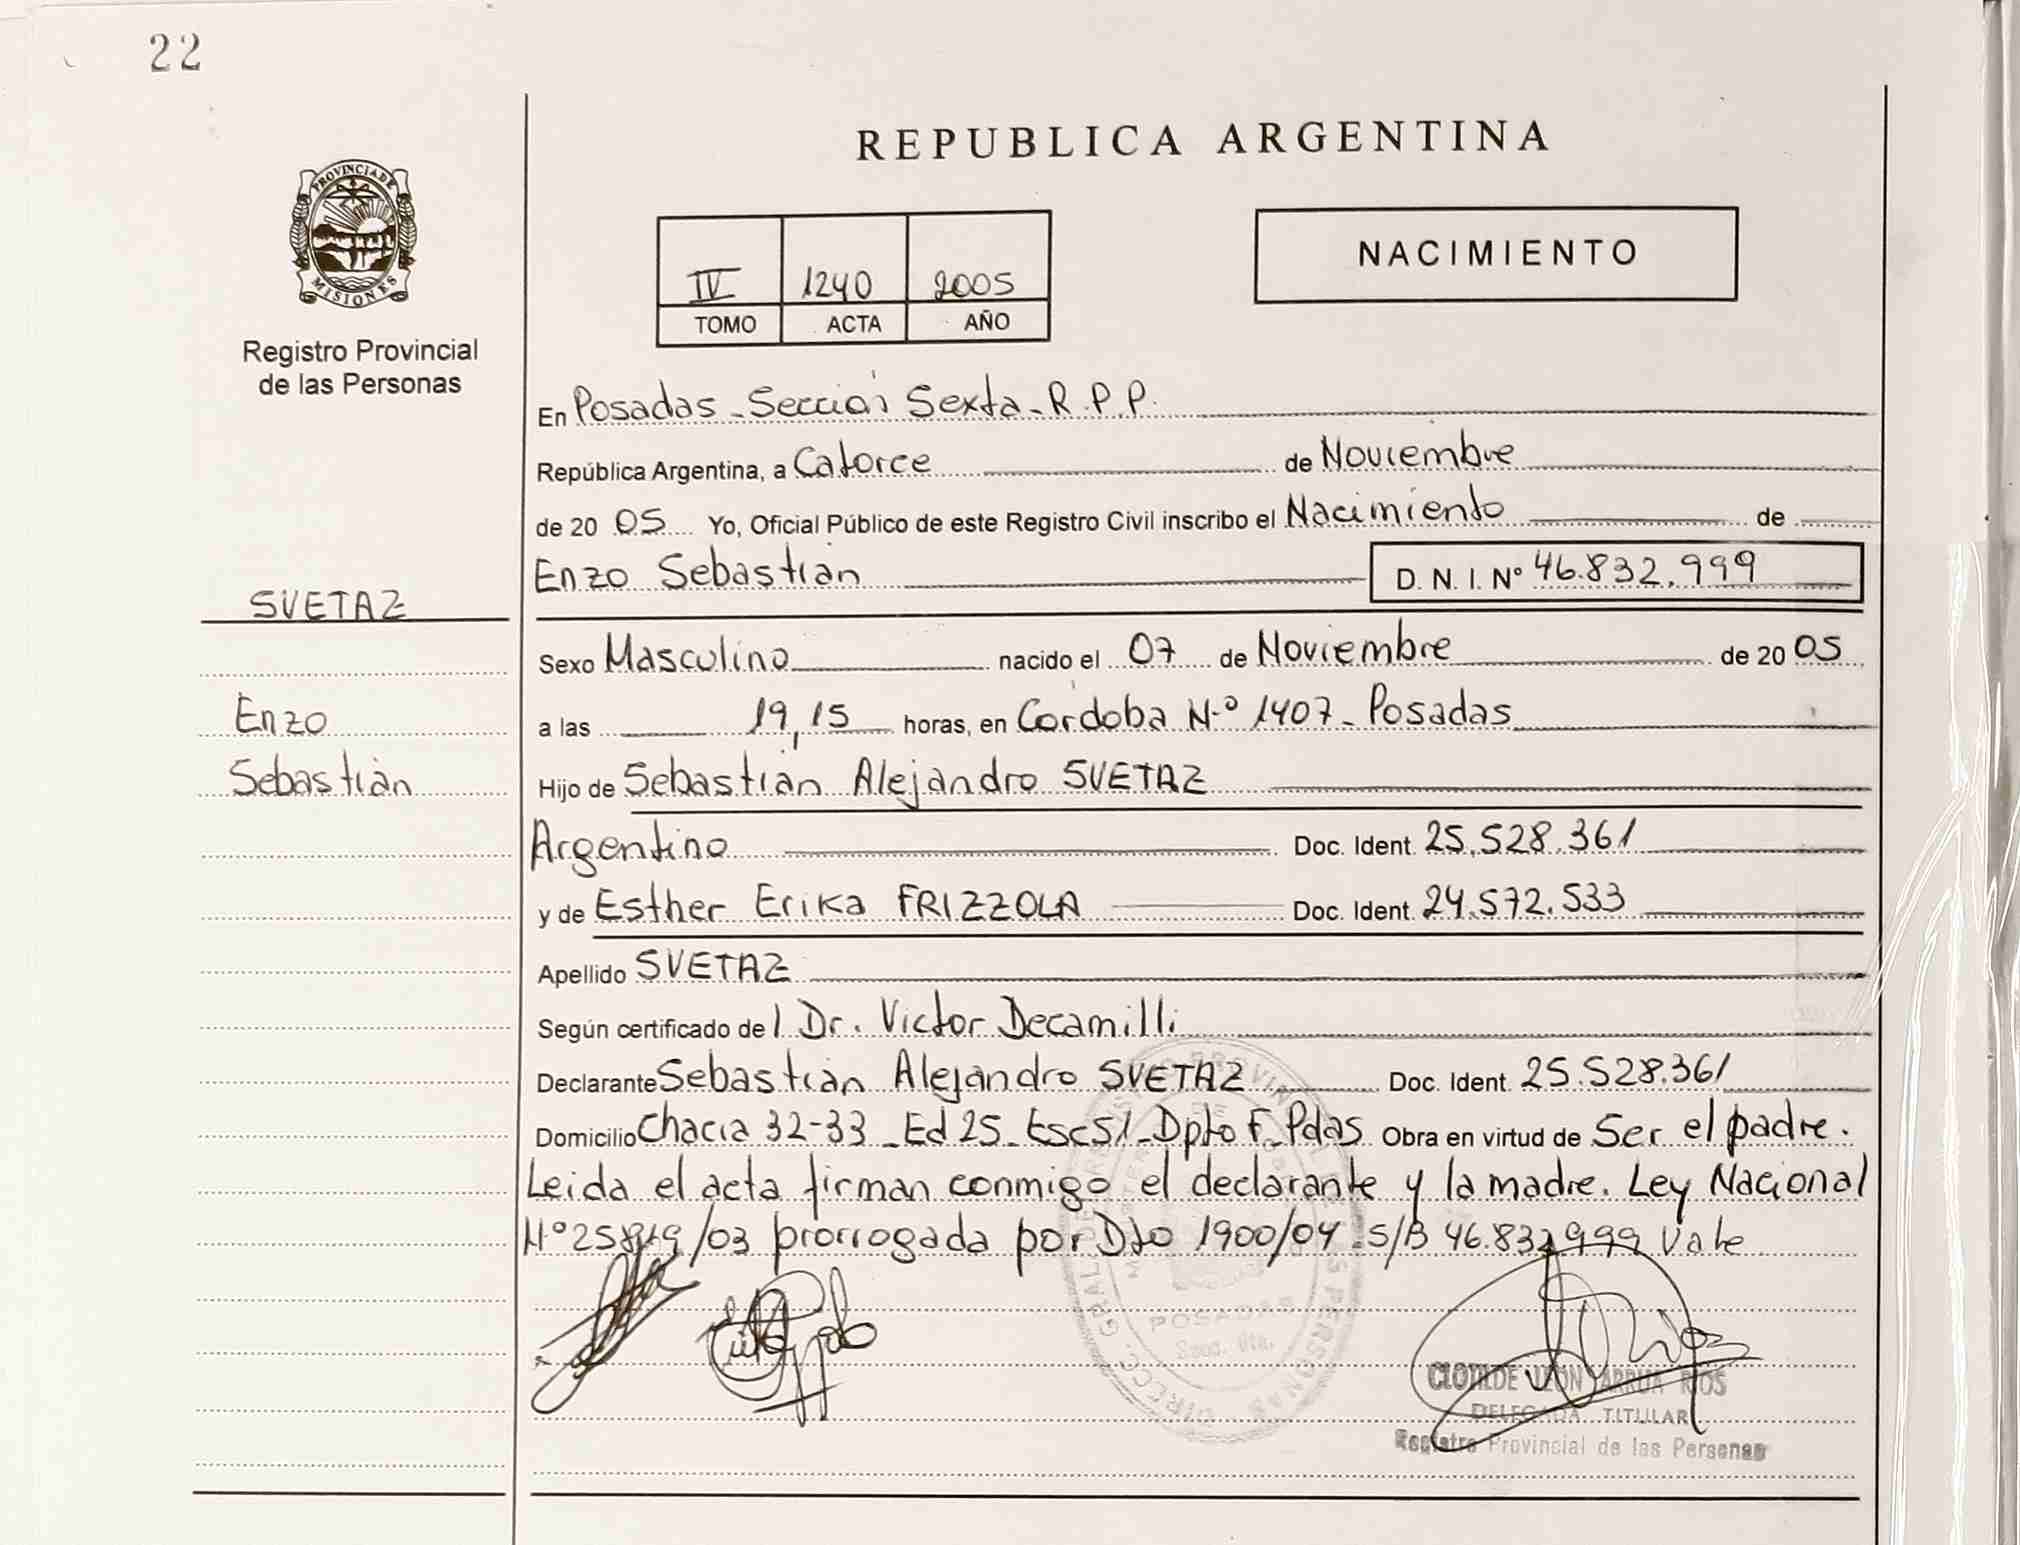 22
REPUBLICA ARGENTINA
PROVINCIA DE
MISIONES
Registro Provincial
de las Personas
IV 1240 2005
TOMO ACTA AÑO
NACIMIENTO
En Posadas - Sección Sexta - R.P.P.
República Argentina, a Catorce de Noviembre
de 20 05 Yo, Oficial Público de este Registro Civil inscribo el Nacimiento de
Enzo Sebastián D. N. I. Nº 46.832.999
SVETAZ
Sexo Masculino nacido el 07 de Noviembre de 20 05
Enzo
a las 19,15 horas, en Córdoba N-º 1407 - Posadas
Sebastián
Hijo de Sebastián Alejandro SVETAZ
Argentino Doc. Ident. 25.528.361
y de Esther Erika FRIZZOLA Doc. Ident. 24.572.533
Apellido SVETAZ
Según certificado de l Dr. Victor Decamilli
Declarante Sebastián Alejandro SVETAZ Doc. Ident. 25.528.361
Domicilio Chacra 32-33 - Ed 25 - Esc 51 - Dpto F - Pdas Obra en virtud de Ser el padre.
Leida el acta firman conmigo el declarante y la madre. Ley Nacional
N-º 25819/03 prorrogada por Dto 1900/04. S/B 46.832.999 Vale
DIRECC. GRAL. DE REGISTRO PROVINCIAL DE LAS PERSONAS
POSADAS
Secc. 6ta.
CLOTILDE LEON YARRUA RIOS
DELEGADA TITULAR
Registro Provincial de las Personas